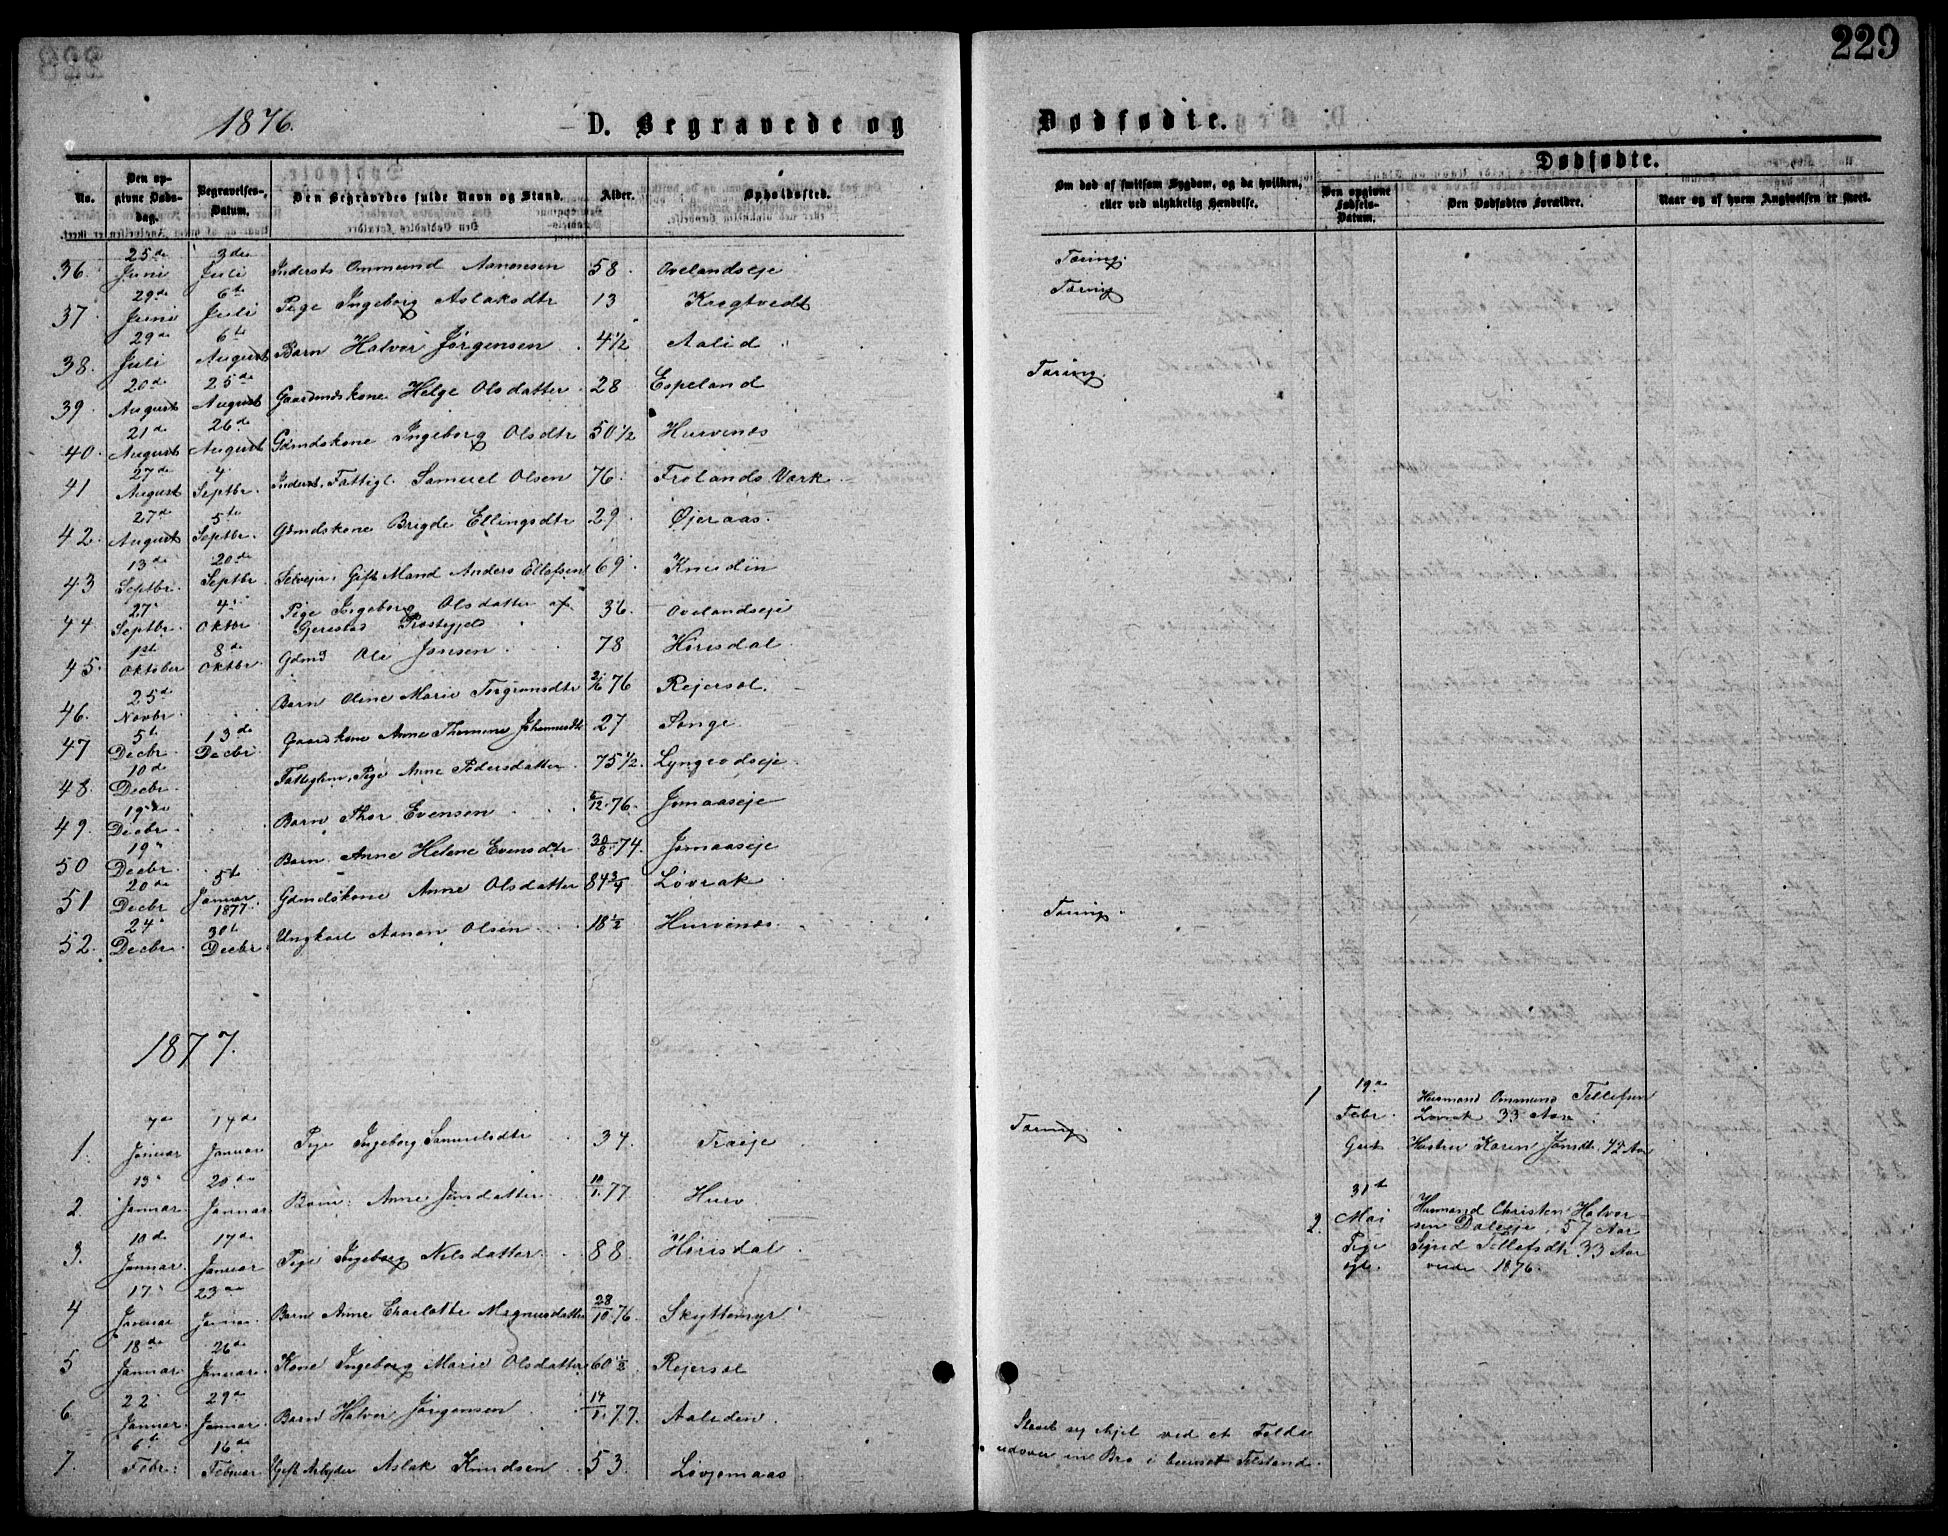 229
1876.
D. Begravede og Dødfødte.
Dødfødte.
No.
Den op-
givne Døds-
dag.
Begravelses-
Datum.
Den Begravedes fulde Navn og Stand.
Alder.
Opholdssted.
Om død af smitsom Sygdom, og da hvilken,
eller ved ulykkelig Hændelse.
Den opgivne
Fødsels-
Datum.
Den Dødfødtes Forældre.
Naar og af hvem Angivelsen er skeet.
36. 25de Juni 3die Juli Inderst Ommund Aanonsen 58. Ovelandseje Tæring.
37. 29de Juni 6te Juli Pige Ingeborg Aslaksdtr 13 Krogtvedt Tæring
38. 29de Juli 6te August Barn Halvor Jørgensen 4 1/2 Aalid
39. 20de August 25de August Gaardmdskone Helge Olsdatter 28 Espeland Tæring.
40. 21de August 26de August Gdmdskone Ingeborg Olsdtr 50 1/2 Hurvenes
41 27de August 4 Septbr. Inderst, Fattigl. Samuel Olsen 76. Frolands Værk
42. 27de August 5te Septbr. Gdmdskone Brigde Ellingsdtr 29. Øjeraas.
43 13de Septbr. 20de Septbr Selvejer Gift Mand Anders Ellefsen 69.
44. 27 Septbr. 4 Oktbr Pige Ingeborg Olsdatter af
Gjerestad Prestegjeld 36. Ovelandseje
45. 1st Oktober 8de Oktbr. Gdmd Ole Jonsen 78 Hørisdal.
46. 25de Novbr Barn Oline Marie Torgrimsdtr 76 Rejersøl.
47 5te Decbr. 13de Decbr Gaardkone Anne Thomine Johannesdtr 27 Songe.
48. 10de Decbr. Fattiglem, Pige Anne Pedersdatter 75 1/2. Lyngrodseje
49. 19de Decbr. Barn Thor Evensen 6/12 76. Jomaaseje
50 19 Decbr. Barn Anne Helene Evensdtr 30/8 74. Jomaaseje
51 20de Decbr 5te Januar 1877. Gdmdskone Anne Olsdatter 84 3/4 Løvrak Tæring
52. 24 Decbr. 30te Decbr. Ungkarl Aanon Olsen 18 1/2 Hurvenes.
1877.
1. 7de Januar 14de Januar Pige Ingeborg Samuelsdtr 34. Træeje Tæring.
2. 13 Januar. 20de Januar. Barn Anne Jensdatter 10/1 77. Hurv
3. 10de Januar. 17de Januar Pige Ingeborg Nilsdatter 88. Hørisdal
4 17 Januar 23de Januar. Barn Anne Charlotte Magnusdatter 28/10 76. Skyttemyr
5 18de Januar 26de Januar. Kone Ingeborg Marie Olsdatter 60 1/2 Rejersøl
6. 22 Januar. 29de Januar. Barn Halvor Jørgensen 14/1 77. Aaliden.
7. 6te Febr. 16de Februar Gift Arbejder Aslak Knudsen 53. Løvjomaas
Slaaet sig ihjel ved et Fald
udover en Bro i beruset Tilstand.
1 19de Febr. Husmand Ommund Tellefsen
Løvrak 33 Aar
Gut Hustru Karen Jonsdtr. 42 Aar
2. 31te Mai Husmand Christen Halvor-
sen Daleeje, 57 Aar
Pige Sigrid Tellefsdtr 33 Aar
1876.